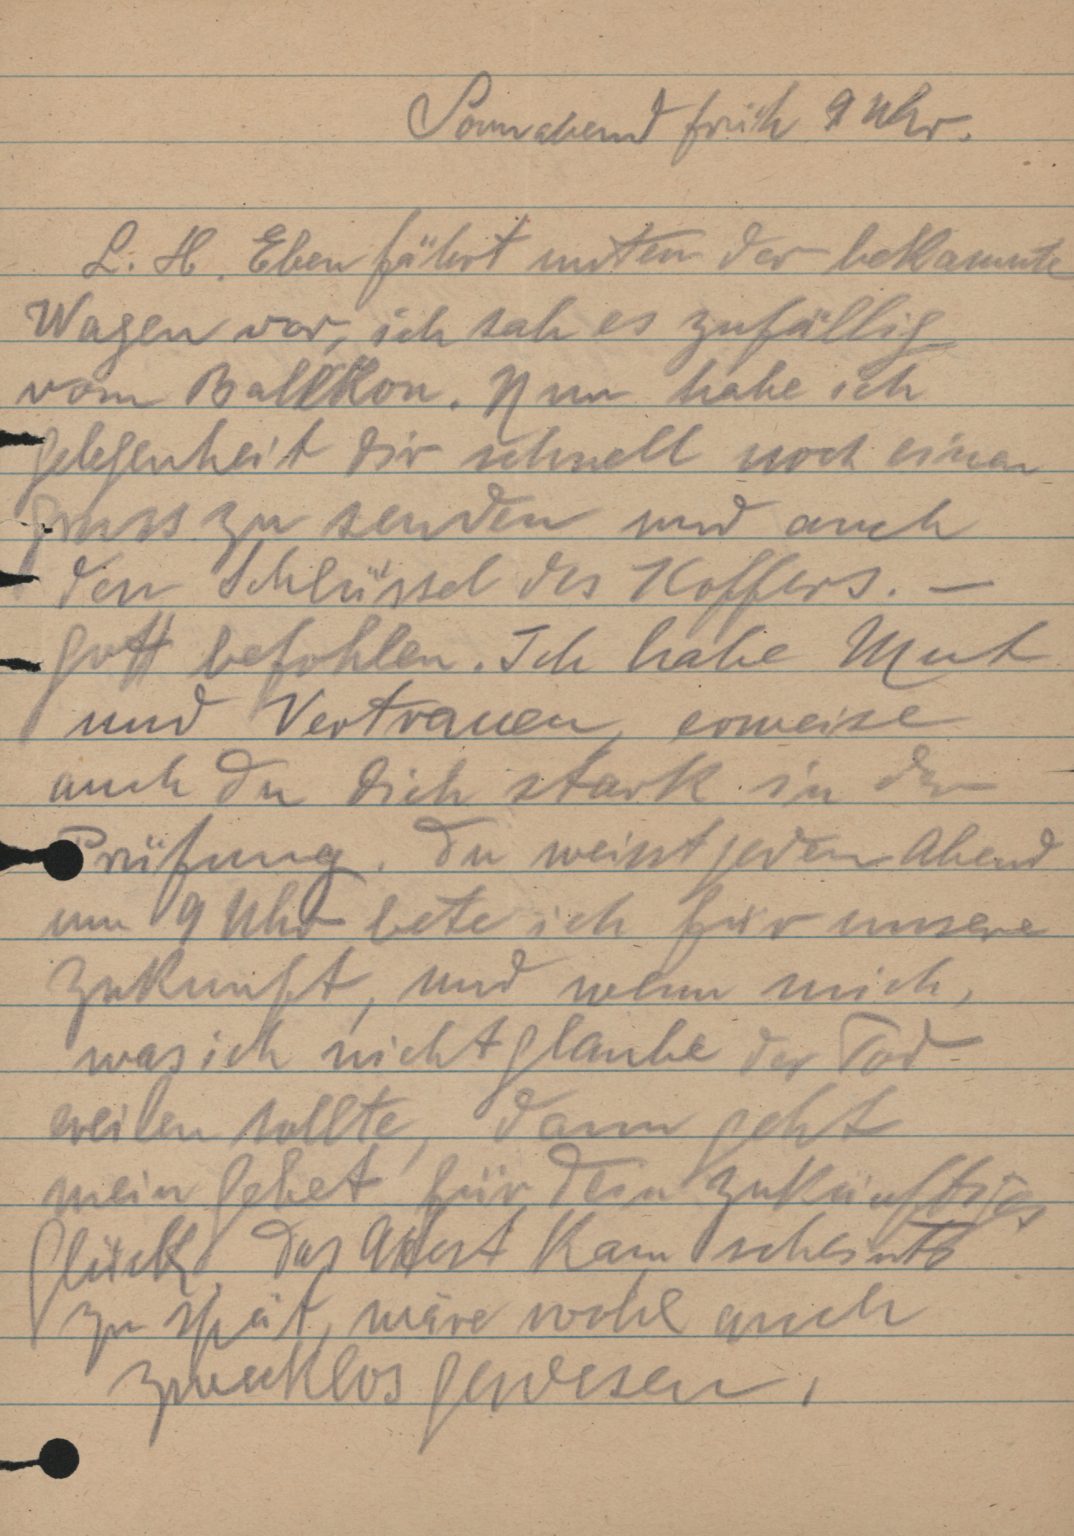 Sonnabend früh 9 Uhr.
L. H. Eben fährt unten der bekannte
Wagen vor, ich sah es zufällig
vom Balkon. Nun habe ich
gelegenheit dir schnell noch einen
gruss zu senden und auch
den Schlüssel des Koffers. —
gott befohlen. Ich habe Mut
und Vertrauen, erweise
auch du dich stark in der
Prüfung. Du weisst jeden Abend
um 9 Uhr bete ich für unsere
Zukunft, und wenn mich,
was ich nicht glaube der Tod
ereilen sollte, dann geht
mein gebet für dein zukünftiges
glück. Das Attest kam scheints
zu spät, wäre wohl auch
zwecklos gewesen,